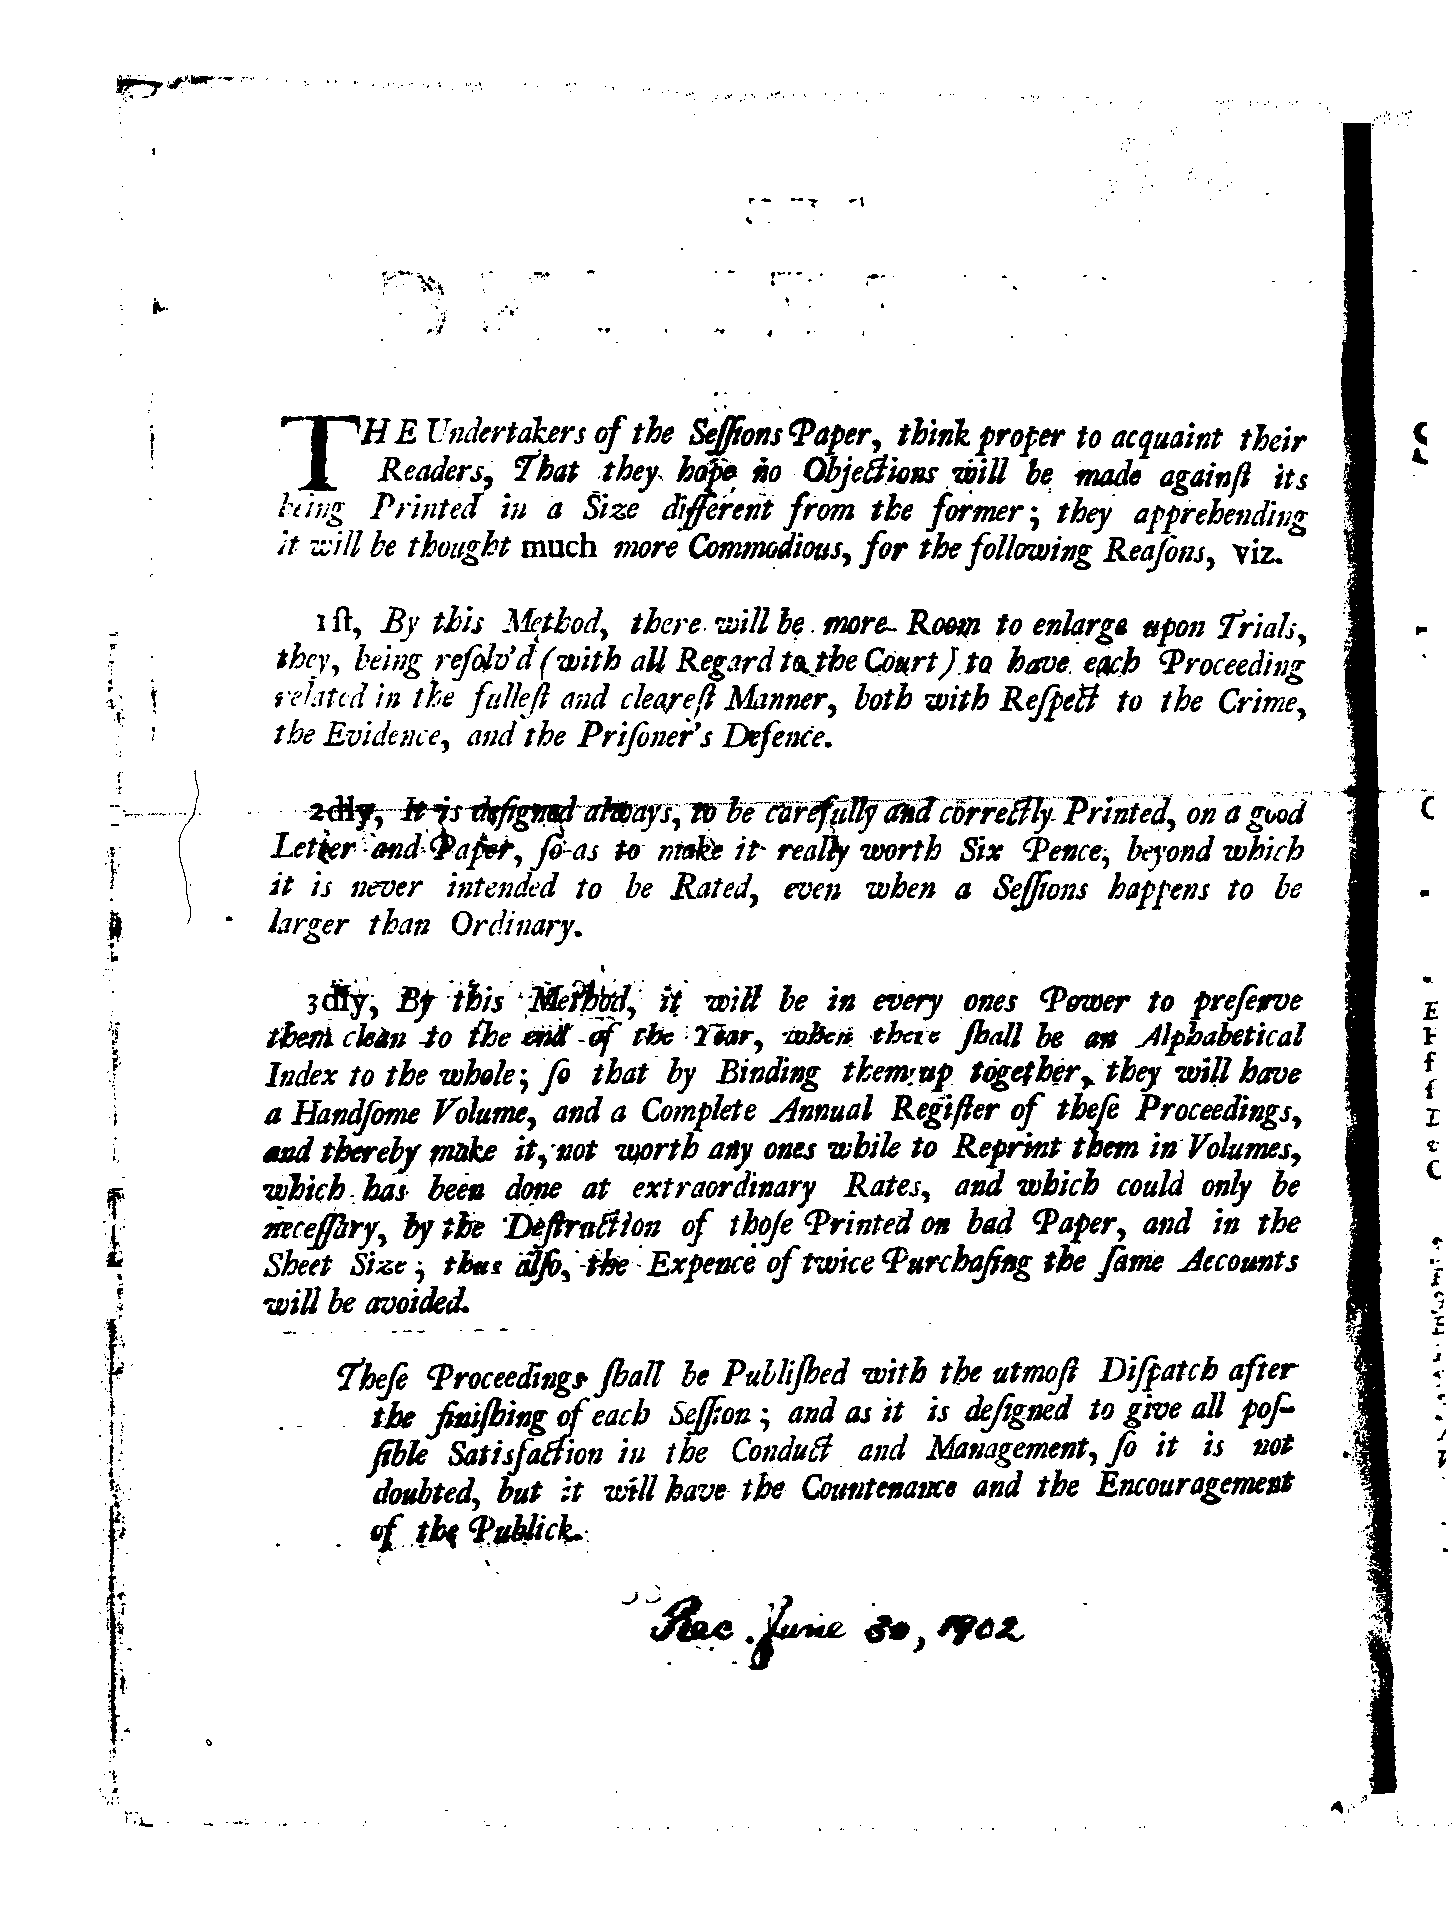 THE Undertakers of the Seſſions Paper, think proper to acquaint their
Readers, That they hope no Objections will be made againſt its
being Printed in a Size different from the former; they apprehending
it will be thought much more Commodious, for the following Reaſons, viz.
1ſt, By this Method, there will be more Room to enlarge upon Trials,
they, being reſolv'd (with all Regard to the Court) to have each Proceeding
related in the fulleſt and cleareſt Manner, both with Reſpect to the Crime,
the Evidence, and the Priſoner's Defence.
2dly, It is deſigned always, to be carefully and correctly Printed, on a good
Letter and Paper, ſo as to make it really worth Six Pence, beyond which
it is never intended to be Rated, even when a Seſſions happens to be
larger than Ordinary.
3dly, By this Method, it will be in every ones Power to preſerve
them clean to the end of the Year, when there ſhall be an Alphabetical
Index to the whole; ſo that by Binding them up together, they will have
a Handſome Volume, and a Complete Annual Regiſter of theſe Proceedings,
and thereby make it, not worth any ones while to Reprint them in Volumes,
which has been done at extraordinary Rates, and which could only be
neceſſary, by the Deſtruction of thoſe Printed on bad Paper, and in the
Sheet Size; thus alſo, the Expence of twice Purchaſing the ſame Accounts
will be avoided.
Theſe Proceedings ſhall be Publiſhed with the utmoſt Diſpatch after
the finiſhing of each Seſſion; and as it is deſigned to give all poſ-
ſible Satisfaction in the Conduct and Management, ſo it is not
doubted, but it will have the Countenance and the Encouragement
of the Publick.
Rec. June 30, 1902